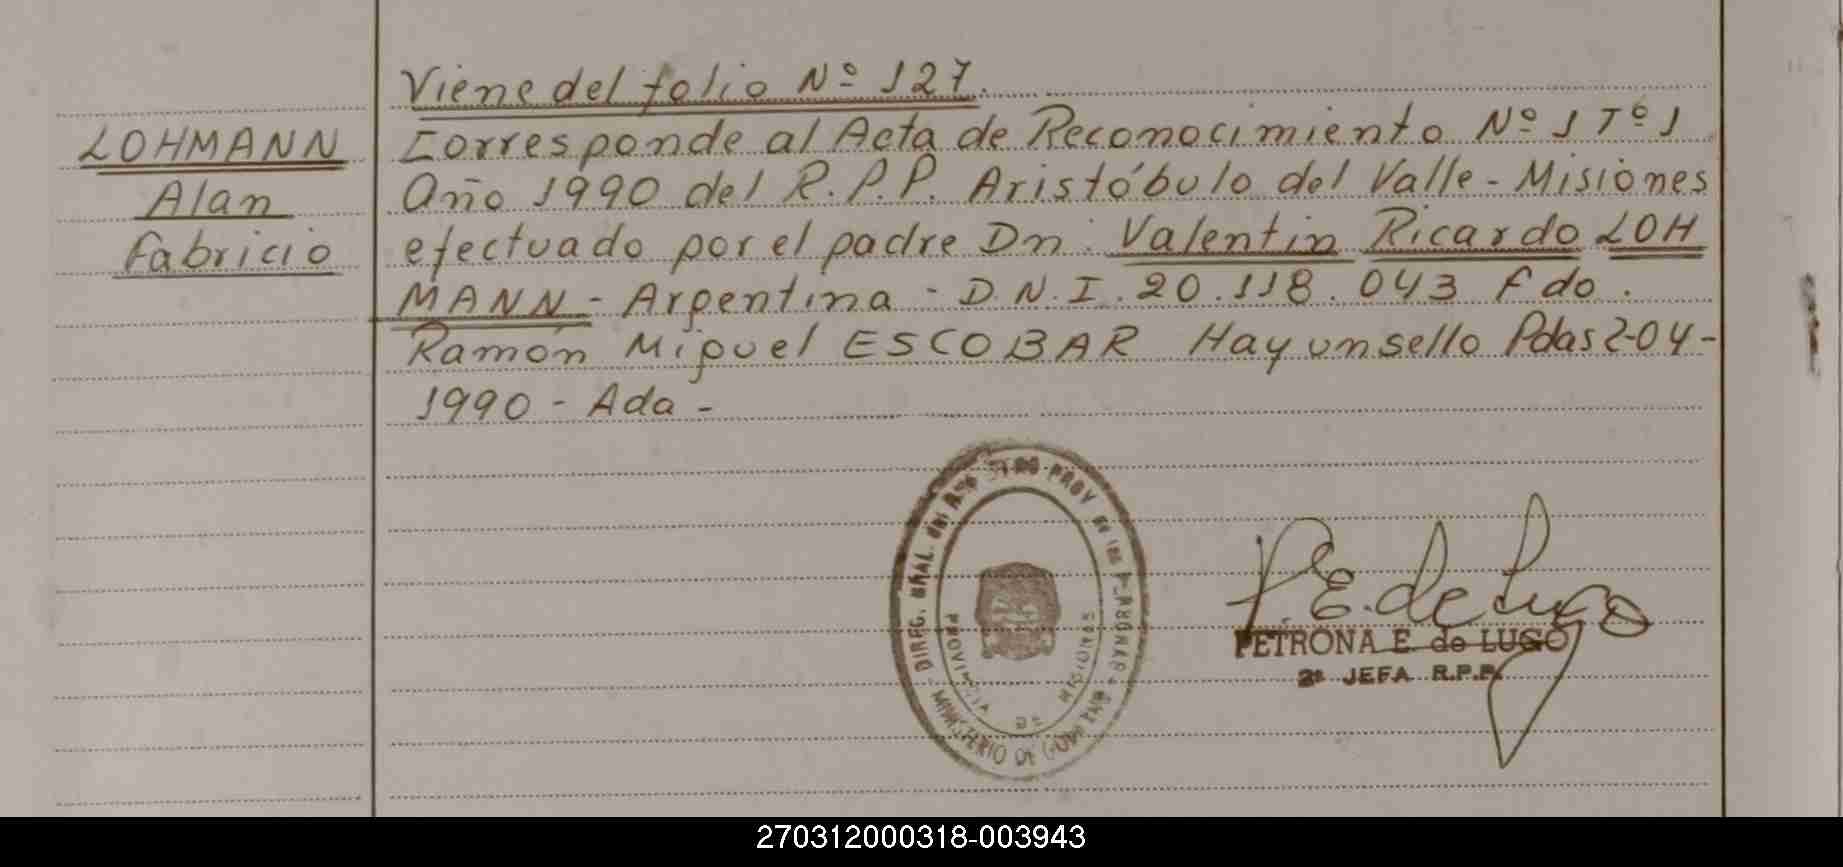 Viene del folio Nº 127.
LOHMANN
Alan
Fabricio
Corresponde al Acta de Reconocimiento Nº 1 Tº 1
Año 1990 del R.P.P. Aristóbulo del Valle - Misiones
efectuado por el padre Dn. Valentin Ricardo LOH
MANN - Argentina - D.N.I. 20.118.043 Fdo.
Ramón Miguel ESCOBAR Hay un sello Pdas 2-04-
1990 - Ada -
DIREC. GRAL. del PROV de las
MINISTERIO DE
PROVINCIA DE MISIONES
P.E. de Lugo
PETRONA E. de LUGO
2ª JEFA R.P.P.
270312000318-003943